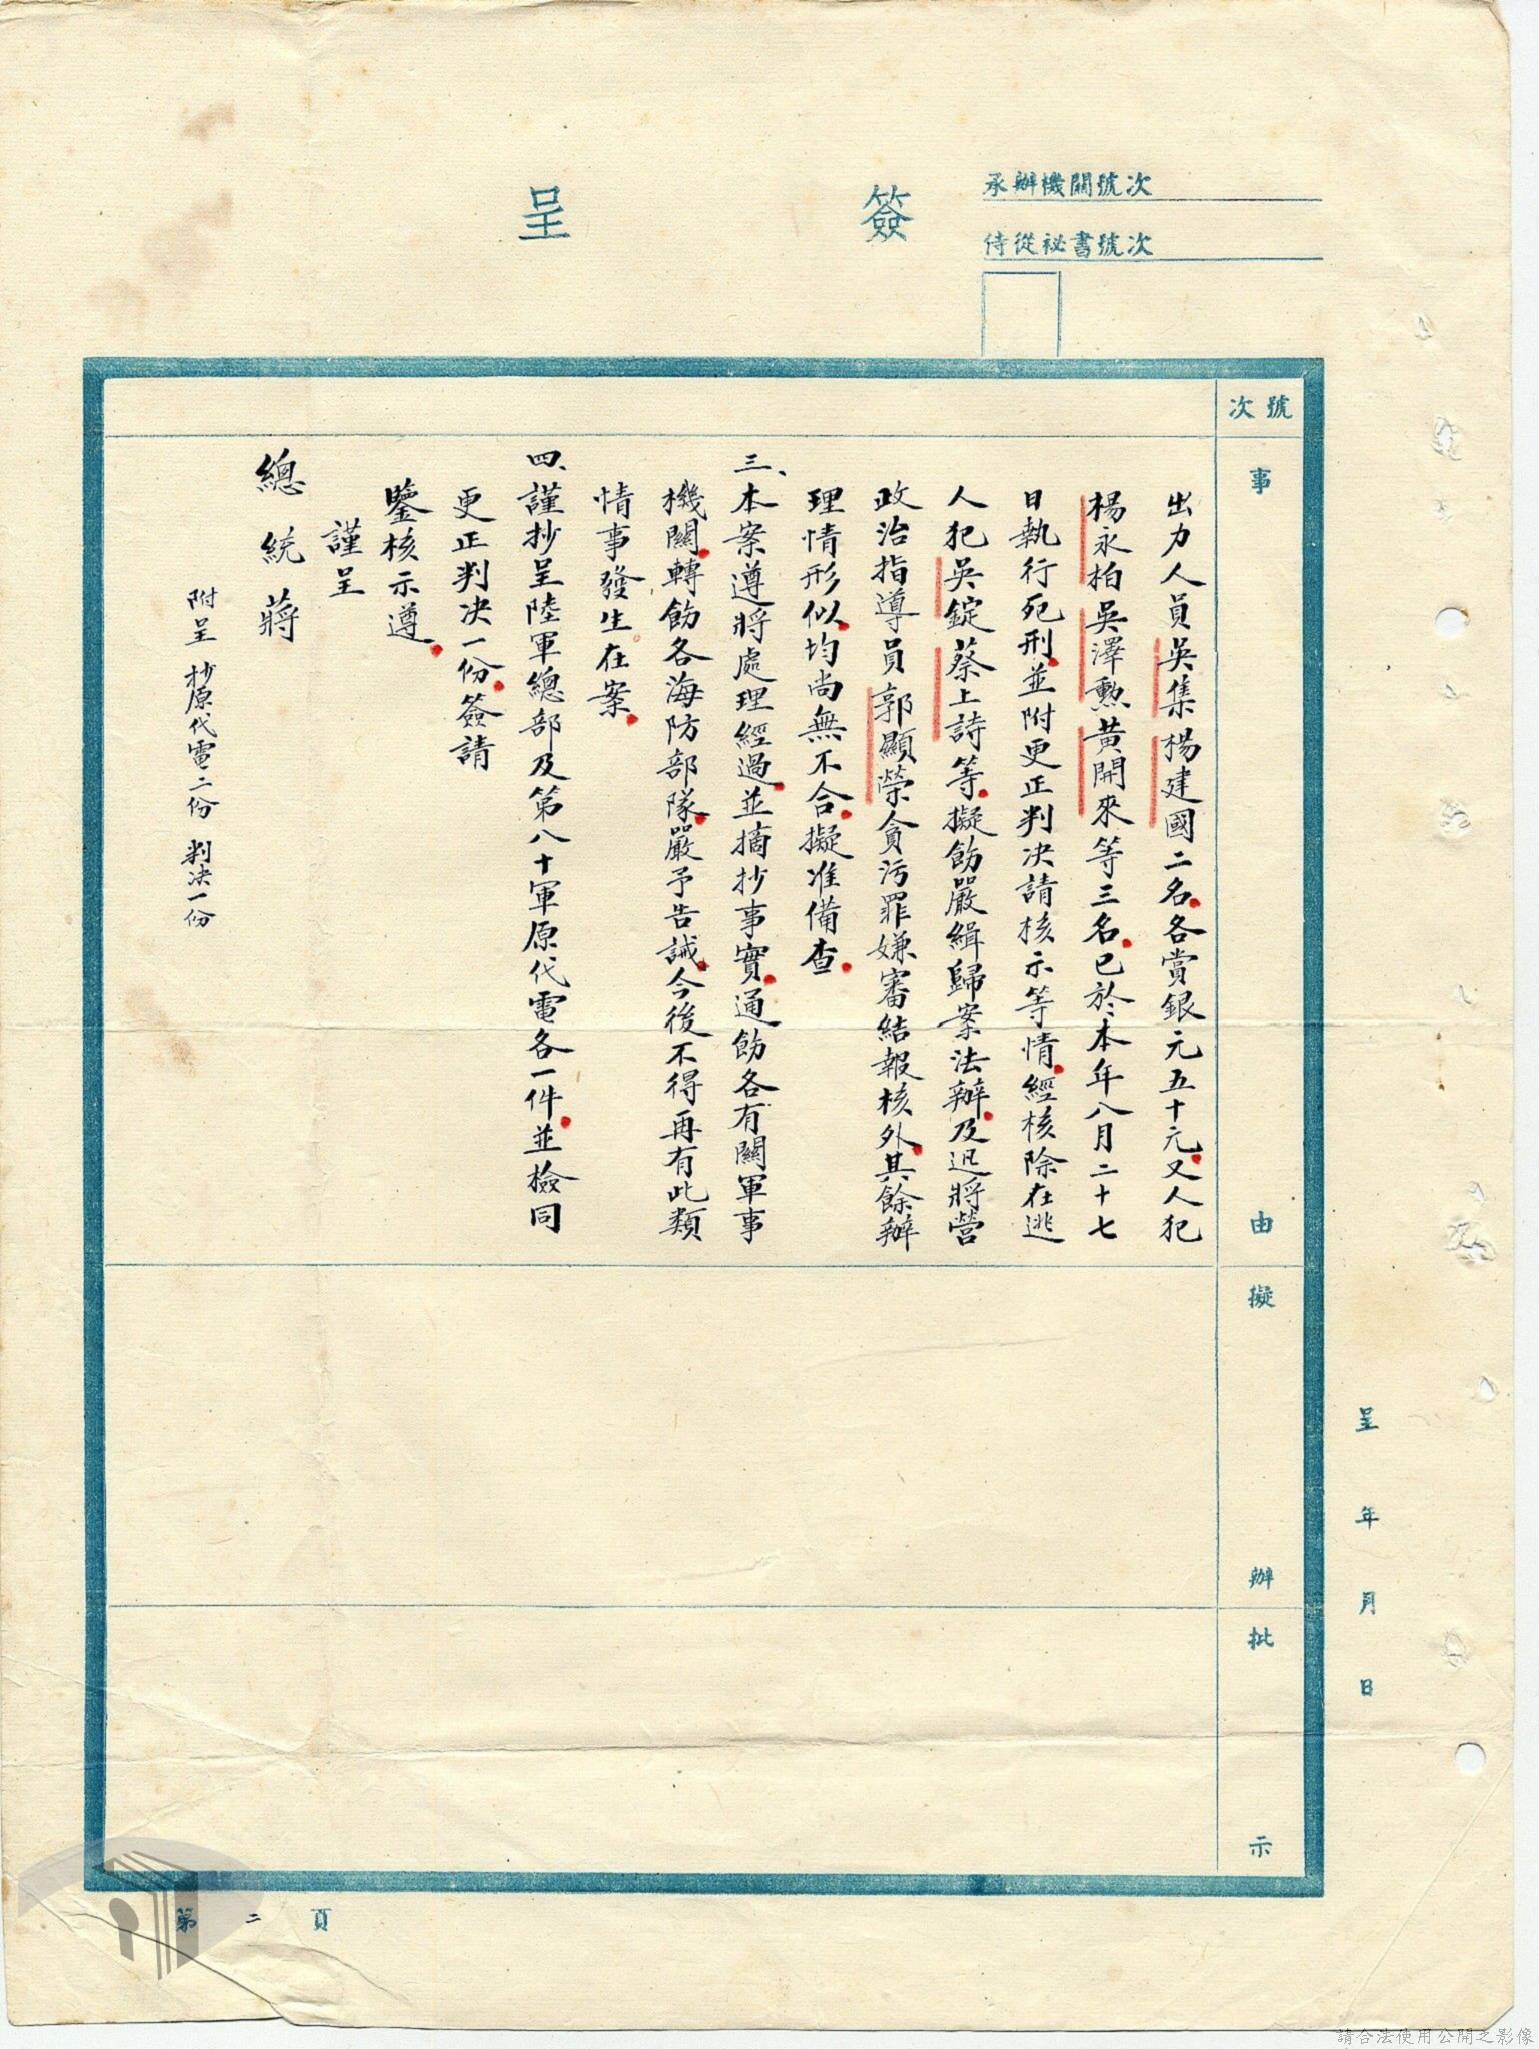 承辦機關號次
侍從祕書號次
簽呈
號次
事由
擬辦
批示
出力人員吳集楊建國二名各賞銀元五十元又人犯
楊永柏吳澤勲黃開來等三名已於本年八月二十七
日執行死刑並附更正判決請核示等情經核除在逃
人犯吳錠蔡上詩等擬飭嚴緝歸案法辦及迅將營
政治指導員郭顯榮貪污罪嫌審結報核外其餘辦
理情形似均尚無不合擬准備查
三、本案遵將處理經過並摘抄事實通飭各有關軍事
機關轉飭各海防部隊嚴予告誡今後不得再有此類
情事發生在案
四、謹抄呈陸軍總部及第八十軍原代電各一件並檢同
更正判決一份簽請
鑒核示遵
謹呈
總統蔣
附呈 抄原代電二份 判決一份
呈 年 月 日
第二頁
請合法使用公開之影像